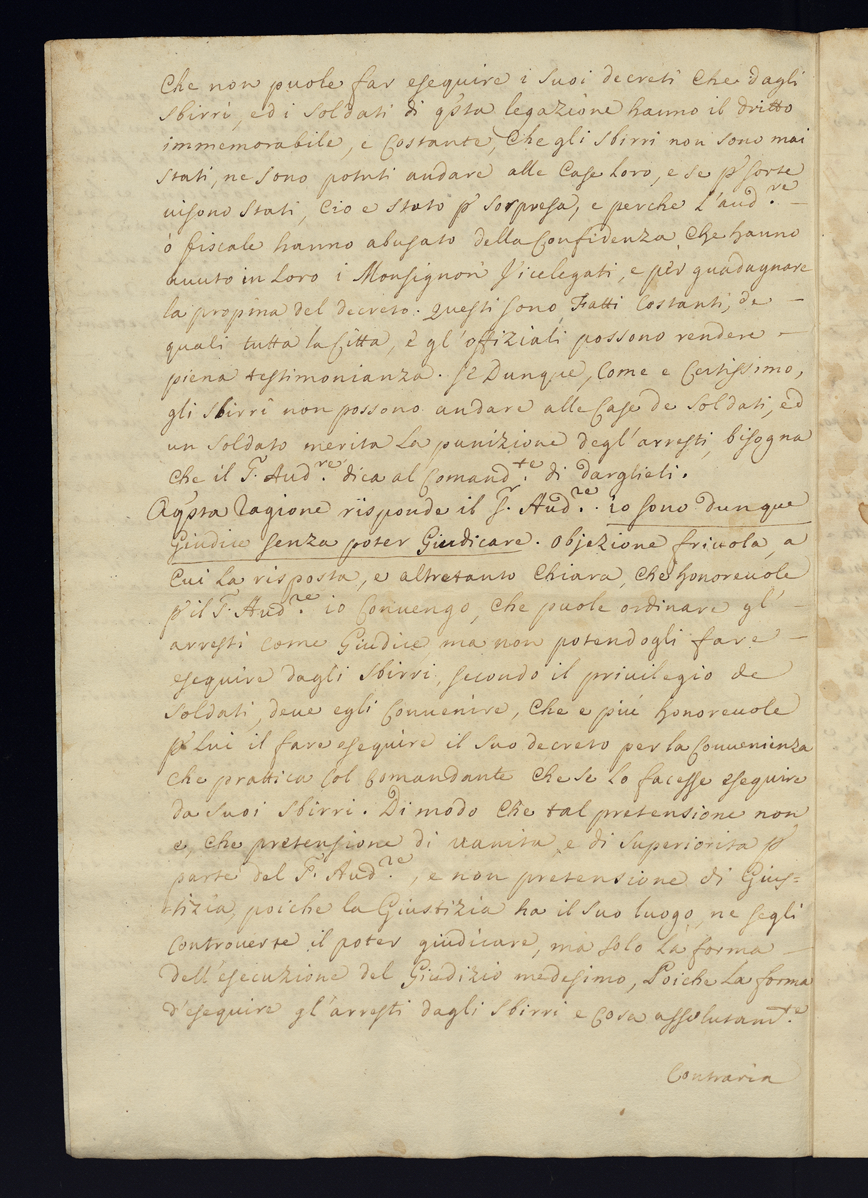 Che non puole far eseguire i suoi decreti che dagli
Sbirri, ed i soldati di qsta legazione hanno il dritto
immemorabile, e Costante, Che gli sbirri non sono mai
stati, ne sono potuti andare alle Case Loro, e se p' sorte
visono stati, Cio e stato p' sorpresa, e perche L'aud.re –
ò fiscale hanno abusato della Confidenza, Che hanno
avuto in Loro i Monsignori Vicelegati, e per guadagnare
la propina del decreto. questi sono, Fatti Costanti, de –
quali tutta la Città, e gl'offiziali possono rendere –
piena testimonianza. Se Dunque, Come e Certissimo,
gli sbirri non possono andare alle Case de soldati, ed
un soldato merita La punizione degl'arresti, bisogna
che il S. Aud.re dica al Comand.te di darglieli.
Aqsta Ragione risponde il S.r Aud.re. io sono dunque
Giudice senza poter Giudicare. objezione frivola, a
Cui La risposta, e altretanto Chiara, che honorevole
p' il S. Aud.re io Convengo, che puole ordinare gl' –
arresti come Giudice ma non potendogli fare –
eseguire dagli sbirri, secondo il privilegio de
soldati, deve egli Convenire, che e più honorevole
p' Lui il fare eseguire il suo decreto per la Convenienza
che prattica Col Comandante che se Lo facesse eseguire
da suoi sbirri. Di modo che tal pretensione non
e, che pretensione di vanita e di superiorita p'
parte del S. Aud.re, e non pretensione di Gius=
tizia, poiche la Giustizia ha il suo luogo, ne segli
Controverte il poter giudicare, ma solo La forma –
dell'esecuzione del Giudizio medesimo, Poiche La forma
d'eseguire gl'arresti dagli sbirri e Cosa assolutam.te
Contraria